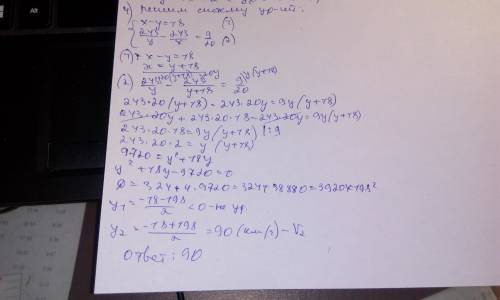 4) решим систему ур-ий.
{ x-y=18 (1)
243/y - 243/x = 9/20 (2)
(1) x-y=18
x=y+18
(2) 243/y - 243/y+18 = 9/20
243·20(y+18)-243·20y=9y(y+18)
243·20y+243·20·18-243·20y=9y(y+18)
243·20·18=9y(y+18) |:9
243·20·2=y(y+18)
9720=y²+18y
y²+18y-9720=0
D=324+4·9720=324+38880=39204=198²
y₁=-18-198/2 <0-не ур.
y₂=-18+198/2=90(км/ч)-V₂
ответ: 90